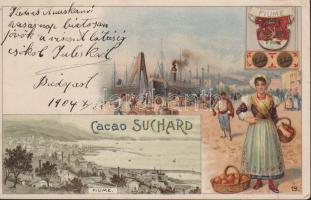 Kedves Annuskám!
vasárnap biztosan
jövök a viszont látásig
csókol Juliskád
Budapest
1904
FIUME
Cacao SUCHARD
FIUME.
19.